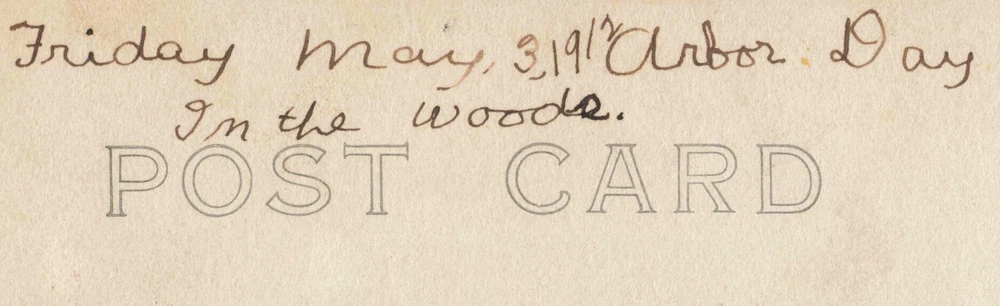 Friday May, 3, 1912 Arbor Day
In the Woods.
POST CARD